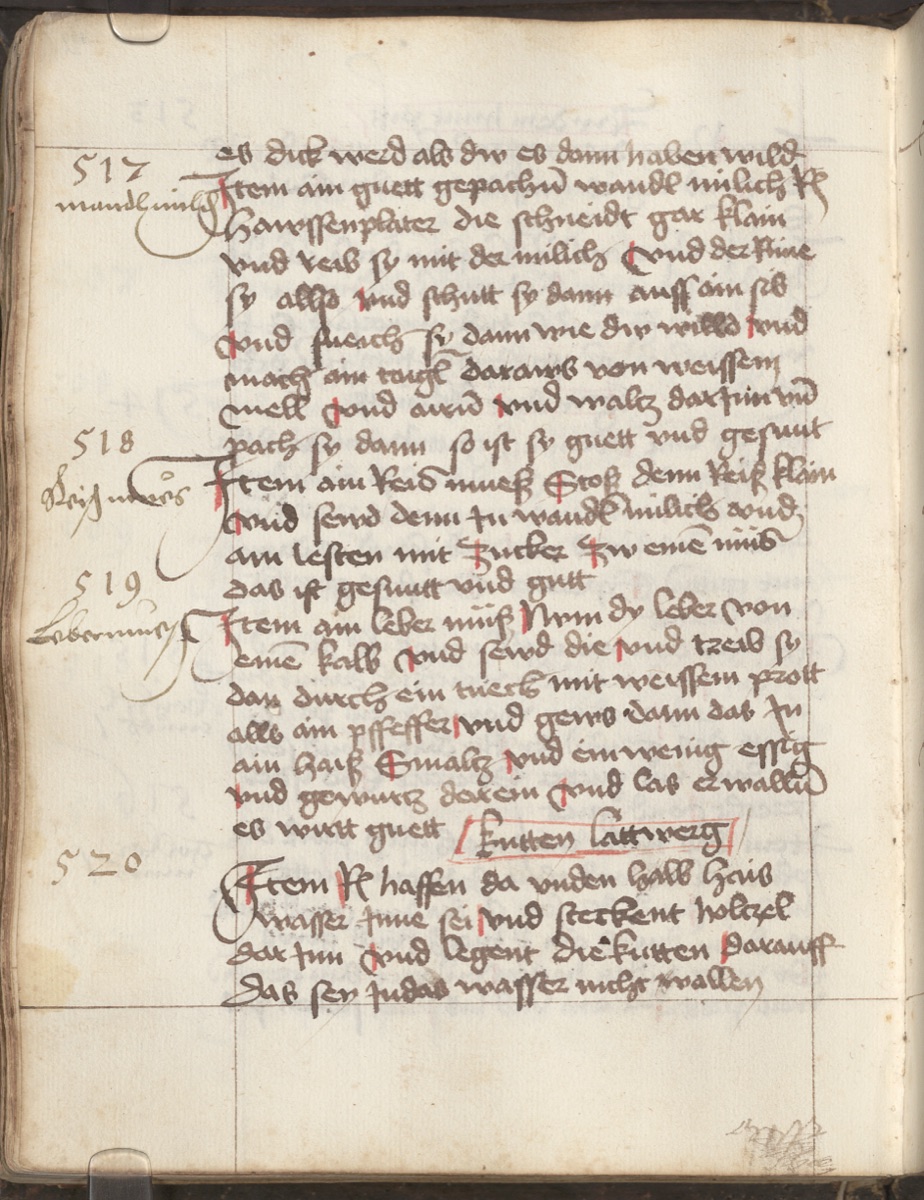 es dick werd als dw es dann haben wild
517
mandlmilch
Item ain guett gepachn̄ mandl milich Rx
hawssenplater die schneidt gar klain
vnd reib sy mit der milich Vnd der Rüre
sy allso vnd schutt sy dann auff ain sib
Vnd sueich sy dann wie dw willd vnd
mach ain taigl daraws von weissem
mell Vnd airn̄ vnd waltz dar Inn vn̄
pach sy dann so ist sy guett vnd gesunt
518
Reiss mues
Item ain Reid muess Stoss denn Reiss klain
Vnd sewd denn In mandl milich vnd
am lesten mit Zucker Zw einē müs
das ist gesuntt vnd gutt
519
Lebermuess
Item ain leber müss Nym dy leber von
einē kalb Vnd sewd die vnd treib sy
dan durch ein tuech mit weissem prott
alls ain pfeffer vnd gews dann das In
ain haiss Smaltz vnd ein wenig essig
vnd gewurtz darein Vnd las erwalln̄
es wirtt guett kutten lattwerg
520
Item Rx haffen da vnden halb hais
wasser Inne sei vnd steckent holtzel
dar Inn Vnd legent die kutten darauff
Das sey In das wasser nicht wallen